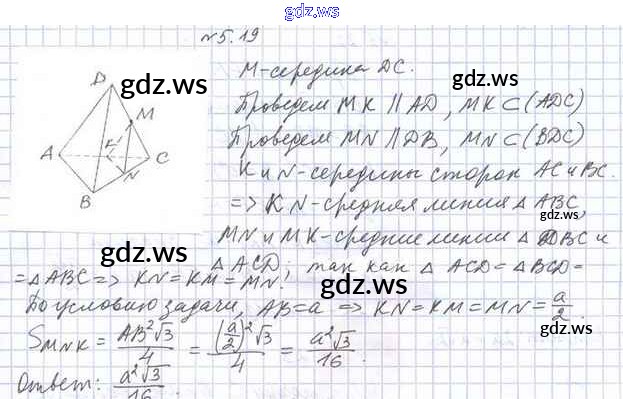 gdz.ws
№5.19
M-середина DC.
Проведем MK || AD, MK ⊂ (ADC)
Проведем MN || DB, MN ⊂ (BDC)
K и N-середины сторон AC и BC.
=> KN-средняя линия △ ABC,
MN и MK-средние линии △ DBC и
△ ACD; так как △ ACD = △ BCD =
= △ ABC => KN = KM = MN.
По условию задачи, AB = a => KN = KM = MN = a/2.
S MNK = AB²√3/4 = (a/2)²√3/4 = a²√3/16.
Ответ: a²√3/16.
D
M
A
K
C
N
B
gdz.ws
gdz.ws
gdz.ws
gdz.ws
gdz.ws
gdz.ws
gdz.ws